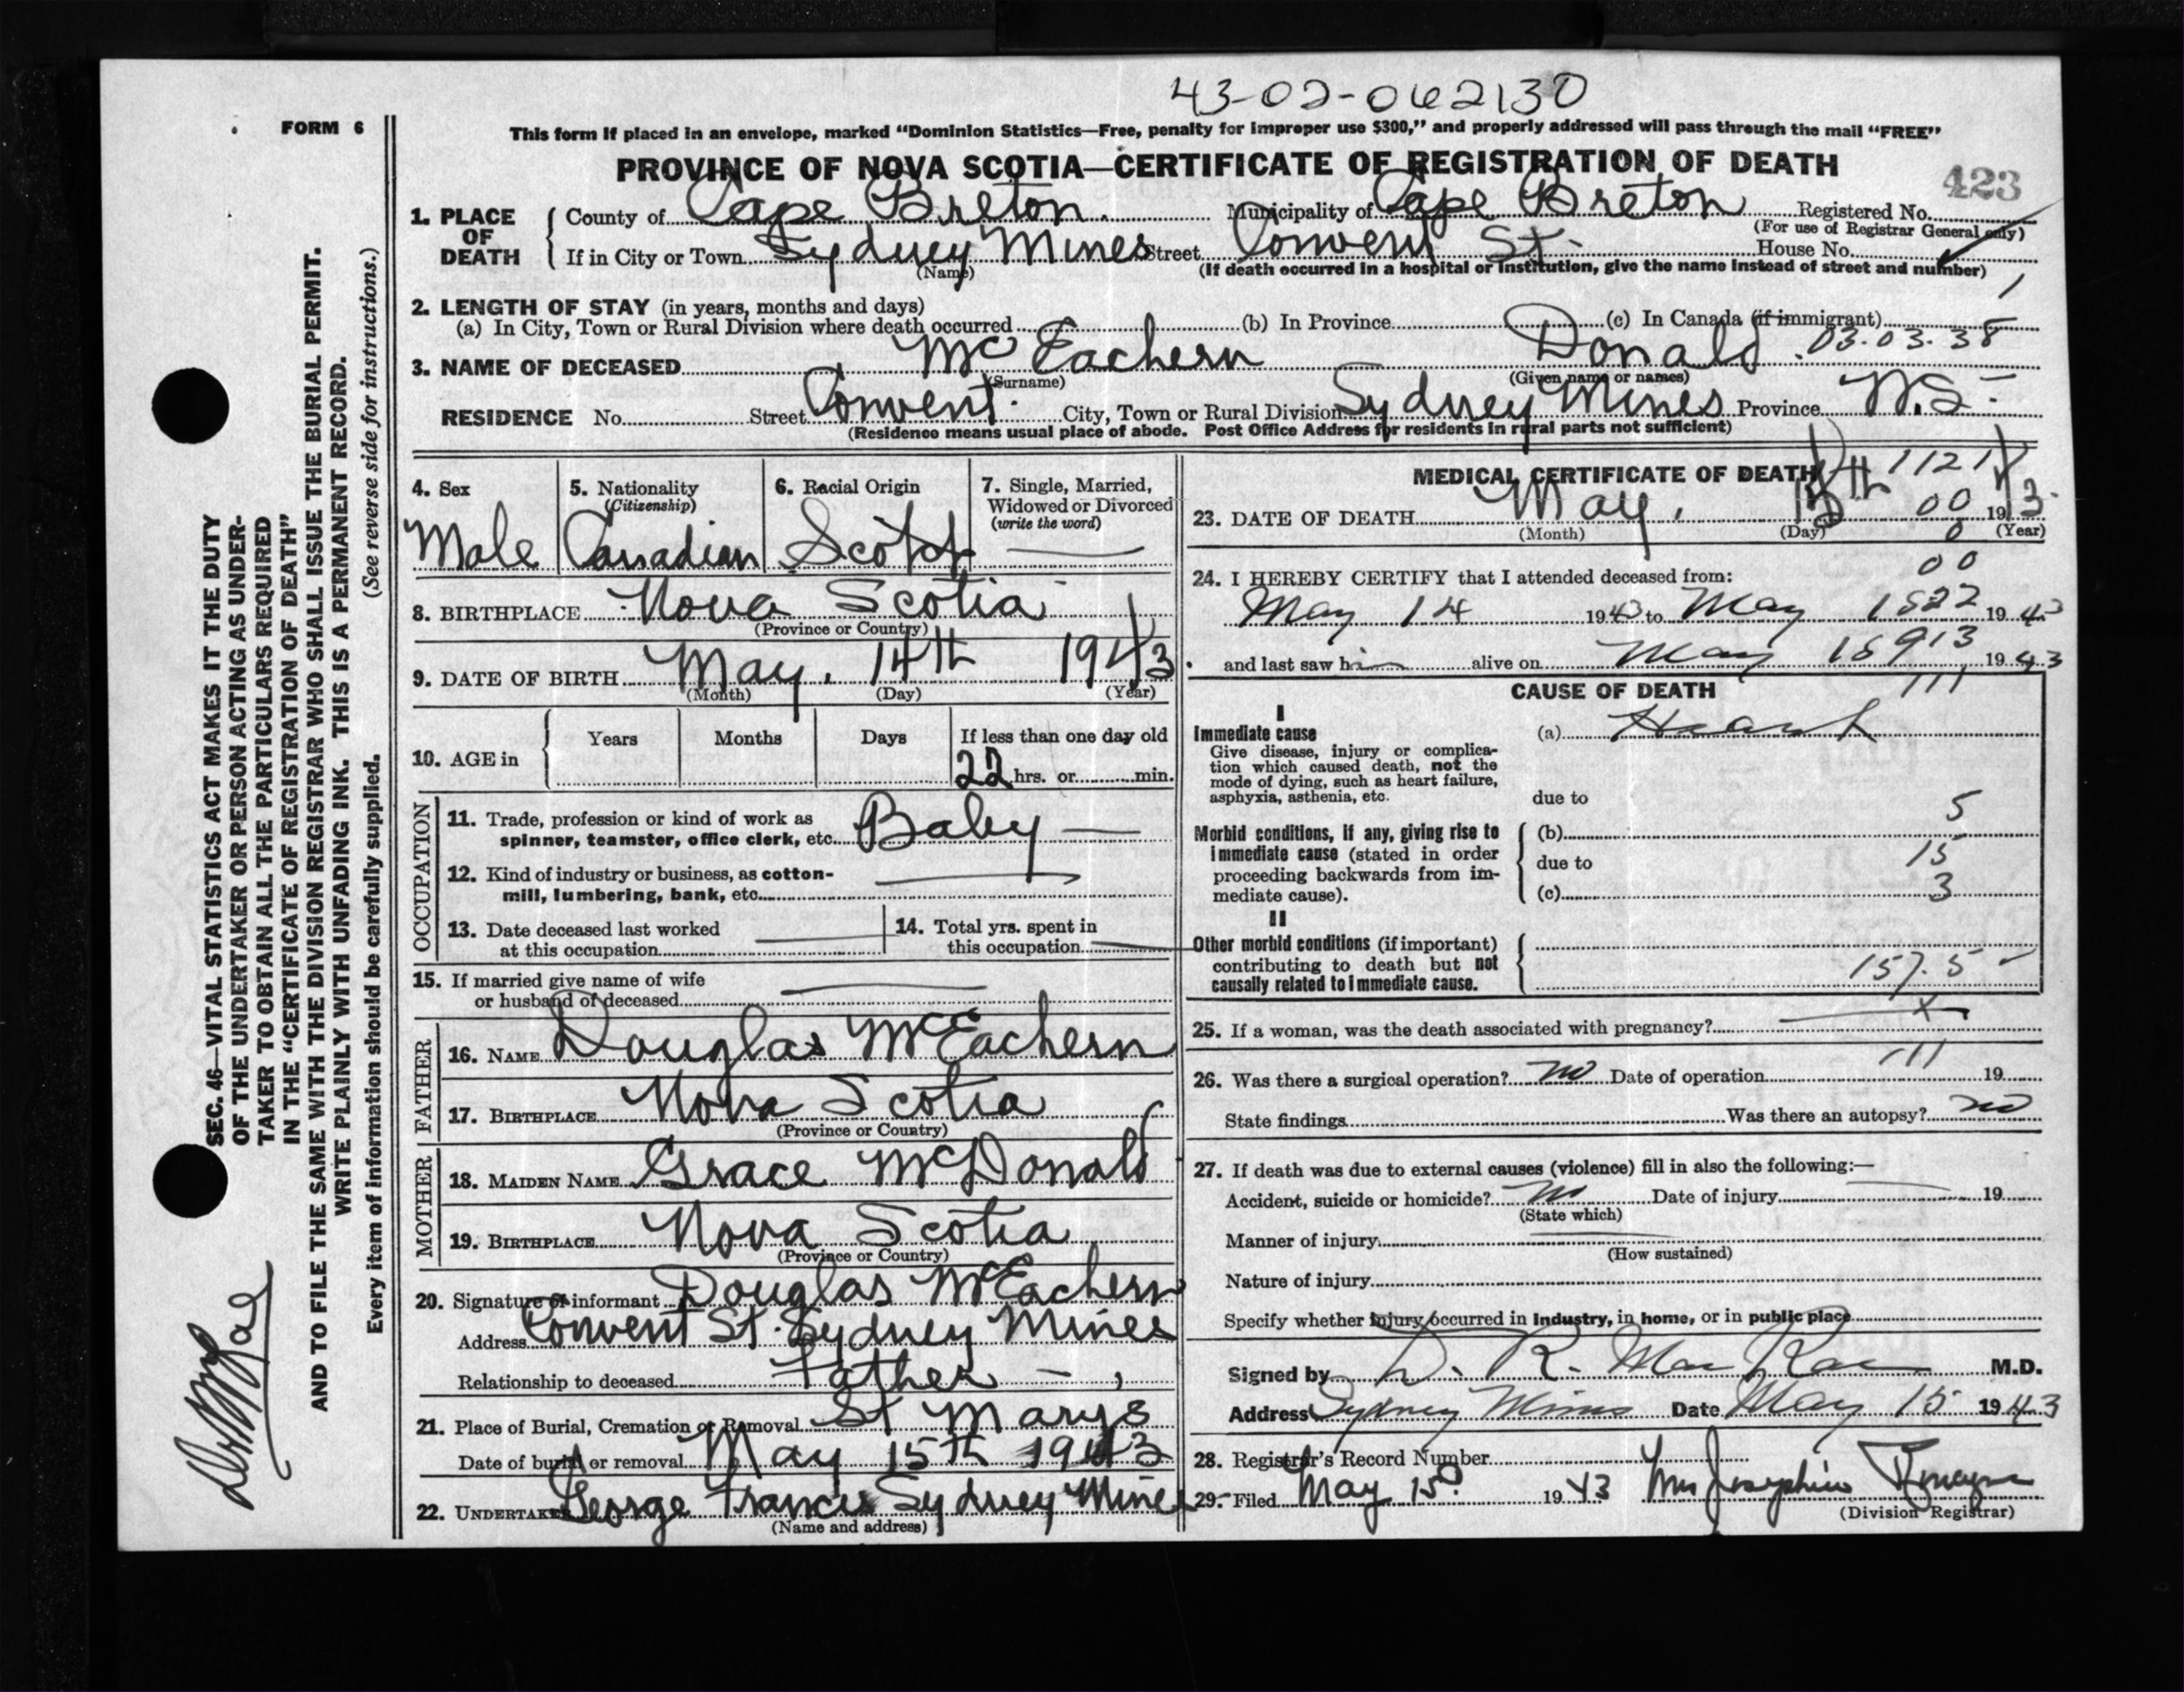 43-02-062130
FORM 6
This form if placed in an envelope, marked "Dominion Statistics—Free, penalty for improper use $300," and properly addressed will pass through the mail "FREE"
PROVINCE OF NOVA SCOTIA—CERTIFICATE OF REGISTRATION OF DEATH
423
1. PLACE OF DEATH
County of Cape Breton. Municipality of Cape Breton Registered No.
(For use of Registrar General only)
If in City or Town Sydney Mines Street Convent St. House No.
(Name) (If death occurred in a hospital or institution, give the name instead of street and number)
1
2. LENGTH OF STAY (in years, months and days)
(a) In City, Town or Rural Division where death occurred (b) In Province (c) In Canada (if immigrant)
03.03.38
3. NAME OF DECEASED McEachern Donald
(Surname) (Given name or names)
RESIDENCE No. Street Convent. City, Town or Rural Division Sydney Mines Province N.S.
(Residence means usual place of abode. Post Office Address for residents in rural parts not sufficient)
4. Sex
Male
5. Nationality
(Citizenship)
Canadian
6. Racial Origin
7. Single, Married,
Widowed or Divorced
(write the word)
8. BIRTHPLACE Nova Scotia
(Province or Country)
9. DATE OF BIRTH May. 14th 1943
(Month) (Day) (Year)
10. AGE in
Years Months Days If less than one day old
22 hrs. or min.
OCCUPATION
11. Trade, profession or kind of work as
spinner, teamster, office clerk, etc. Baby —
12. Kind of industry or business, as cotton-
mill, lumbering, bank, etc.
13. Date deceased last worked
at this occupation
14. Total yrs. spent in
this occupation
15. If married give name of wife
or husband of deceased
FATHER
16. NAME Douglas McEachern
17. BIRTHPLACE Nova Scotia
(Province or Country)
MOTHER
18. MAIDEN NAME Grace McDonald
19. BIRTHPLACE Nova Scotia
(Province or Country)
20. Signature of informant Douglas McEachern
Address Convent St. Sydney Mines
Relationship to deceased Father
21. Place of Burial, Cremation or Removal St Marys
Date of burial or removal May 15th 1943
22. UNDERTAKER George Francis Sydney Mines
(Name and address)
MEDICAL CERTIFICATE OF DEATH
1121
23. DATE OF DEATH May. 00 1943
(Month) (Day) (Year)
0
00
24. I HEREBY CERTIFY that I attended deceased from:
May 14 1943 to May 1522 1943
and last saw him alive on May 15913 1943
CAUSE OF DEATH
111
I
Immediate cause
Give disease, injury or complica-
tion which caused death, not the
mode of dying, such as heart failure,
asphyxia, asthenia, etc.
(a) Heart
due to
5
Morbid conditions, if any, giving rise to
immediate cause (stated in order
proceeding backwards from im-
mediate cause).
(b)
due to 15
(c) 3
II
Other morbid conditions (if important)
contributing to death but not
causally related to immediate cause.
157.5
25. If a woman, was the death associated with pregnancy? X
111
26. Was there a surgical operation? no Date of operation 19
State findings Was there an autopsy? no
27. If death was due to external causes (violence) fill in also the following:—
Accident, suicide or homicide? no Date of injury 19
(State which)
Manner of injury
(How sustained)
Nature of injury
Specify whether injury occurred in industry, in home, or in public place
Signed by D. R. MacRae M.D.
Address Sydney Mines Date May 15 1943
28. Registrar's Record Number
29. Filed May 15 1943 Mrs Josephine
(Division Registrar)
SEC. 46—VITAL STATISTICS ACT MAKES IT THE DUTY
OF THE UNDERTAKER OR PERSON ACTING AS UNDER-
TAKER TO OBTAIN ALL THE PARTICULARS REQUIRED
IN THE "CERTIFICATE OF REGISTRATION OF DEATH"
AND TO FILE THE SAME WITH THE DIVISION REGISTRAR WHO SHALL ISSUE THE BURIAL PERMIT.
WRITE PLAINLY WITH UNFADING INK. THIS IS A PERMANENT RECORD.
Every item of information should be carefully supplied. (See reverse side for instructions.)